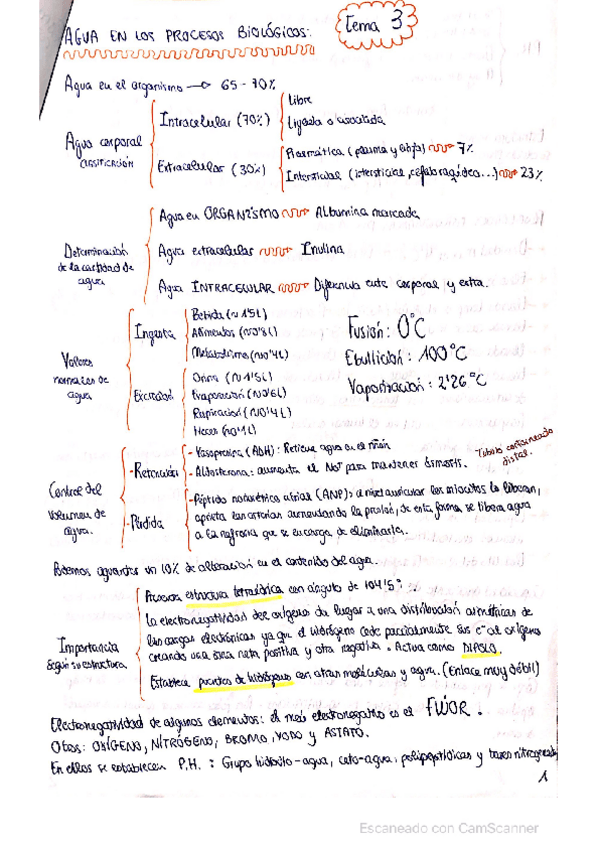 AGUA EN LOS PROCESOS BIOLÓGICOS:
Tema 3
Agua en el organismo → 65-70%
Agua corporal
CLASIFICACIÓN
Intracelular (70%)
Libre
Ligada o asociada
Extracelular (30%)
Plasmática (plasma y linfa) 7%
Intersticial (intersticial, cefalorraquídea...) 23%
Determinación
de la cantidad de
agua
Agua en ORGANISMO Albumina marcada
Agua extracelular Inulina
Agua INTRACELULAR Diferencia entre corporal y extra.
Valores
normales de
agua
Ingesta
Bebida (~1'5L)
Alimentos (~0'8L)
Metabolismo (~0'4L)
Excreción
Orina (~1'5L)
Evaporación (~0'6L)
Respiración (~0'4L)
Heces (~0'1L)
Fusión: 0°C
Ebullición: 100°C
Vaporización: 2'26 °C
Control del
volumen de
agua.
-Retención
- Vasopresina (ADH): Retiene agua en el riñón
- Aldosterona: aumenta el Na+ para mantener osmosis.
Túbulo contorneado
distal.
-Pérdida
-Péptido natriurético atrial (ANP), a nivel auricular los miocitos lo liberan,
aprieta las arterias aumentando la presión, de esta forma, se libera agua
a la nefrona que se encarga de eliminarla.
Podemos aguantar un 10% de alteración en el contenido del agua.
Importancia
según su estructura
estructura tetraédrica con ángulo de 104'5°.
La electronegatividad del oxígeno da lugar a una distribución asimétrica de
las cargas electrónicas ya que el hidrógeno cede parcialmente sus e- al oxígeno
creando una área neta positiva y otra negativa. Actua como DIPOLO.
Establece puentes de hidrógeno con otras moléculas y agua. (Enlace muy débil)
Electronegatividad de algunos elementos: el más electronegativo es el FLÚOR.
Otros: OXÍGENO, NITRÓGENO, BROMO, YODO y ASTATO.
En ellos se establecen P.H.: Grupo hidroxilo-agua, ceto-agua, polipeptídicas y bases nitrogenadas
1
Escaneado con CamScanner